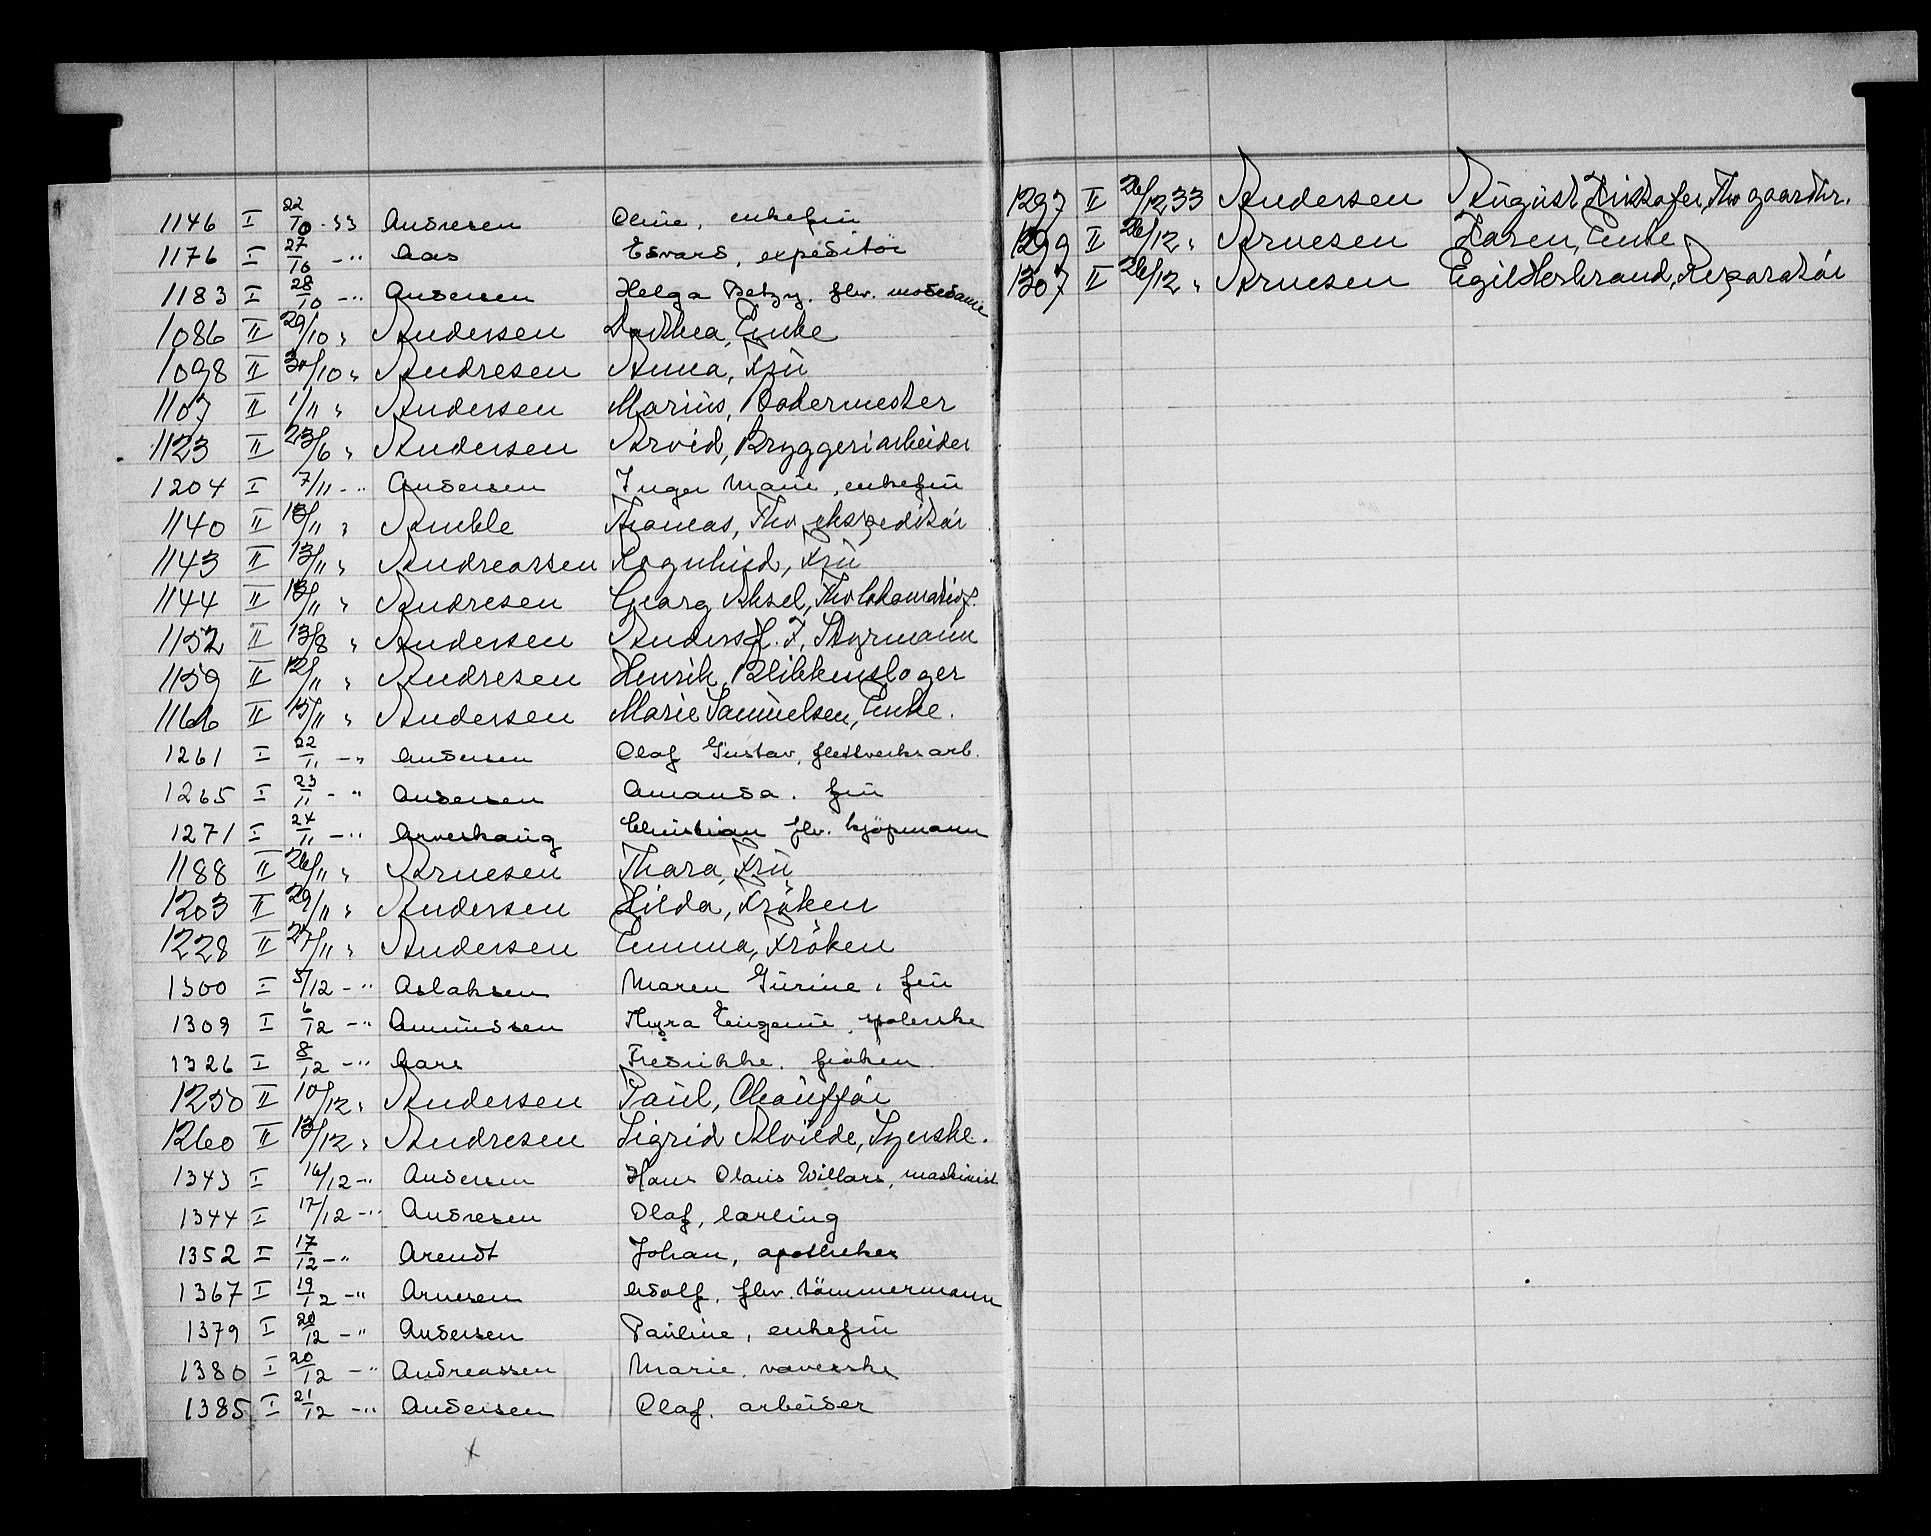 1146 I 22/10-33 Andresen Oline, enkefru
1176 I 27/10 -"- Aas Edvard, expeditør
1183 I 28/10 -"- Andersen Helga Betzy. flv. motedame
1086 II 29/10 " Andersen Dorthea, Enke
1098 II 30/10 " Andresen Anna, Fru
1107 II 1/11 " Andersen Marius, Bademester
1123 II 23/6 " Andersen Arvid, Bryggeriarbeider
1204 I 7/11 -"- Andersen Inger Marie, enkefru
1140 II 13/11 " Amble Thomas, Fhv ekspeditør
1143 II 13/11 " Andreassen Ragnhild, Fru
1144 II 13/11 " Andresen Georg Aksel, Fhv lokomotivf.
1152 II 13/8 " Andersen Anders H. F., Styrmann
1159 II 12/11 " Andresen Henrik, Blikkenslager
1166 II 15/11 " Andersen Marie Samuelsen, Enke.
1261 I 22/11 -"- Andersen Olaf Gustav, flv. arb.
1265 I 23/11 -"- Andersen Amanda. fru
1271 I 24/11 -"- Arveshaug Christian flv. kjøpmann
1188 II 26/11 " Arnesen Thora, Fru
1203 II 29/11 " Andersen Hilda, Frøken
1228 II 27/11 " Andersen Emma, Frøken
1300 I 5/12 -"- Aslaksen Maren Gurine, fru
1309 I 6/12 -"- Amundsen Thyra Eugenie, spolerske
1326 I 8/12 -"- Aars Fredrikke. frøken
1250 II 10/12 " Andersen Paul, Chauffør
1260 II 13/12 " Andresen Sigrid Alvilde, Syerske.
1343 I 16/12 -"- Andersen Hans Olaus Willard, maskinist
1344 I 17/12 -"- Andresen Olaf, lærling
1352 I 17/12 -"- Arendt Johan, apotheker
1367 I 19/12 -"- Arnesen Adolf, flv. tømmermann
1379 I 20/12 -"- Andersen Pauline, enkefru
1380 I 20/12 -"- Andreassen Marie, væverske
1385 I 21/12 -"- Andersen Olaf, arbeider
x
1297 II 26/12 33 Andersen August Kristofer, Fhv gaardbr.
1299 II 26/12 " Arnesen Karen, Enke
1307 II 26/12 " Arnesen Egil Herbrand, Reparatør